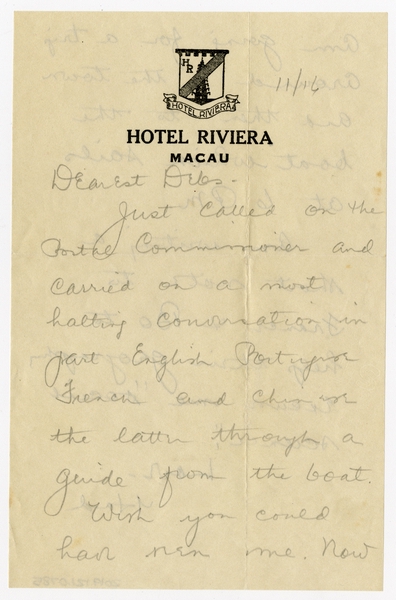 HR
HOTEL RIVIERA
11/16
HOTEL RIVIERA
MACAU
Dearest Dibs -
Just called on the
Postal Commissioner and
carried on a most
halting conversation in
part English Portugese
French and Chinese
the latter through a
guide from the boat.
Wish you could
have seen me. Now